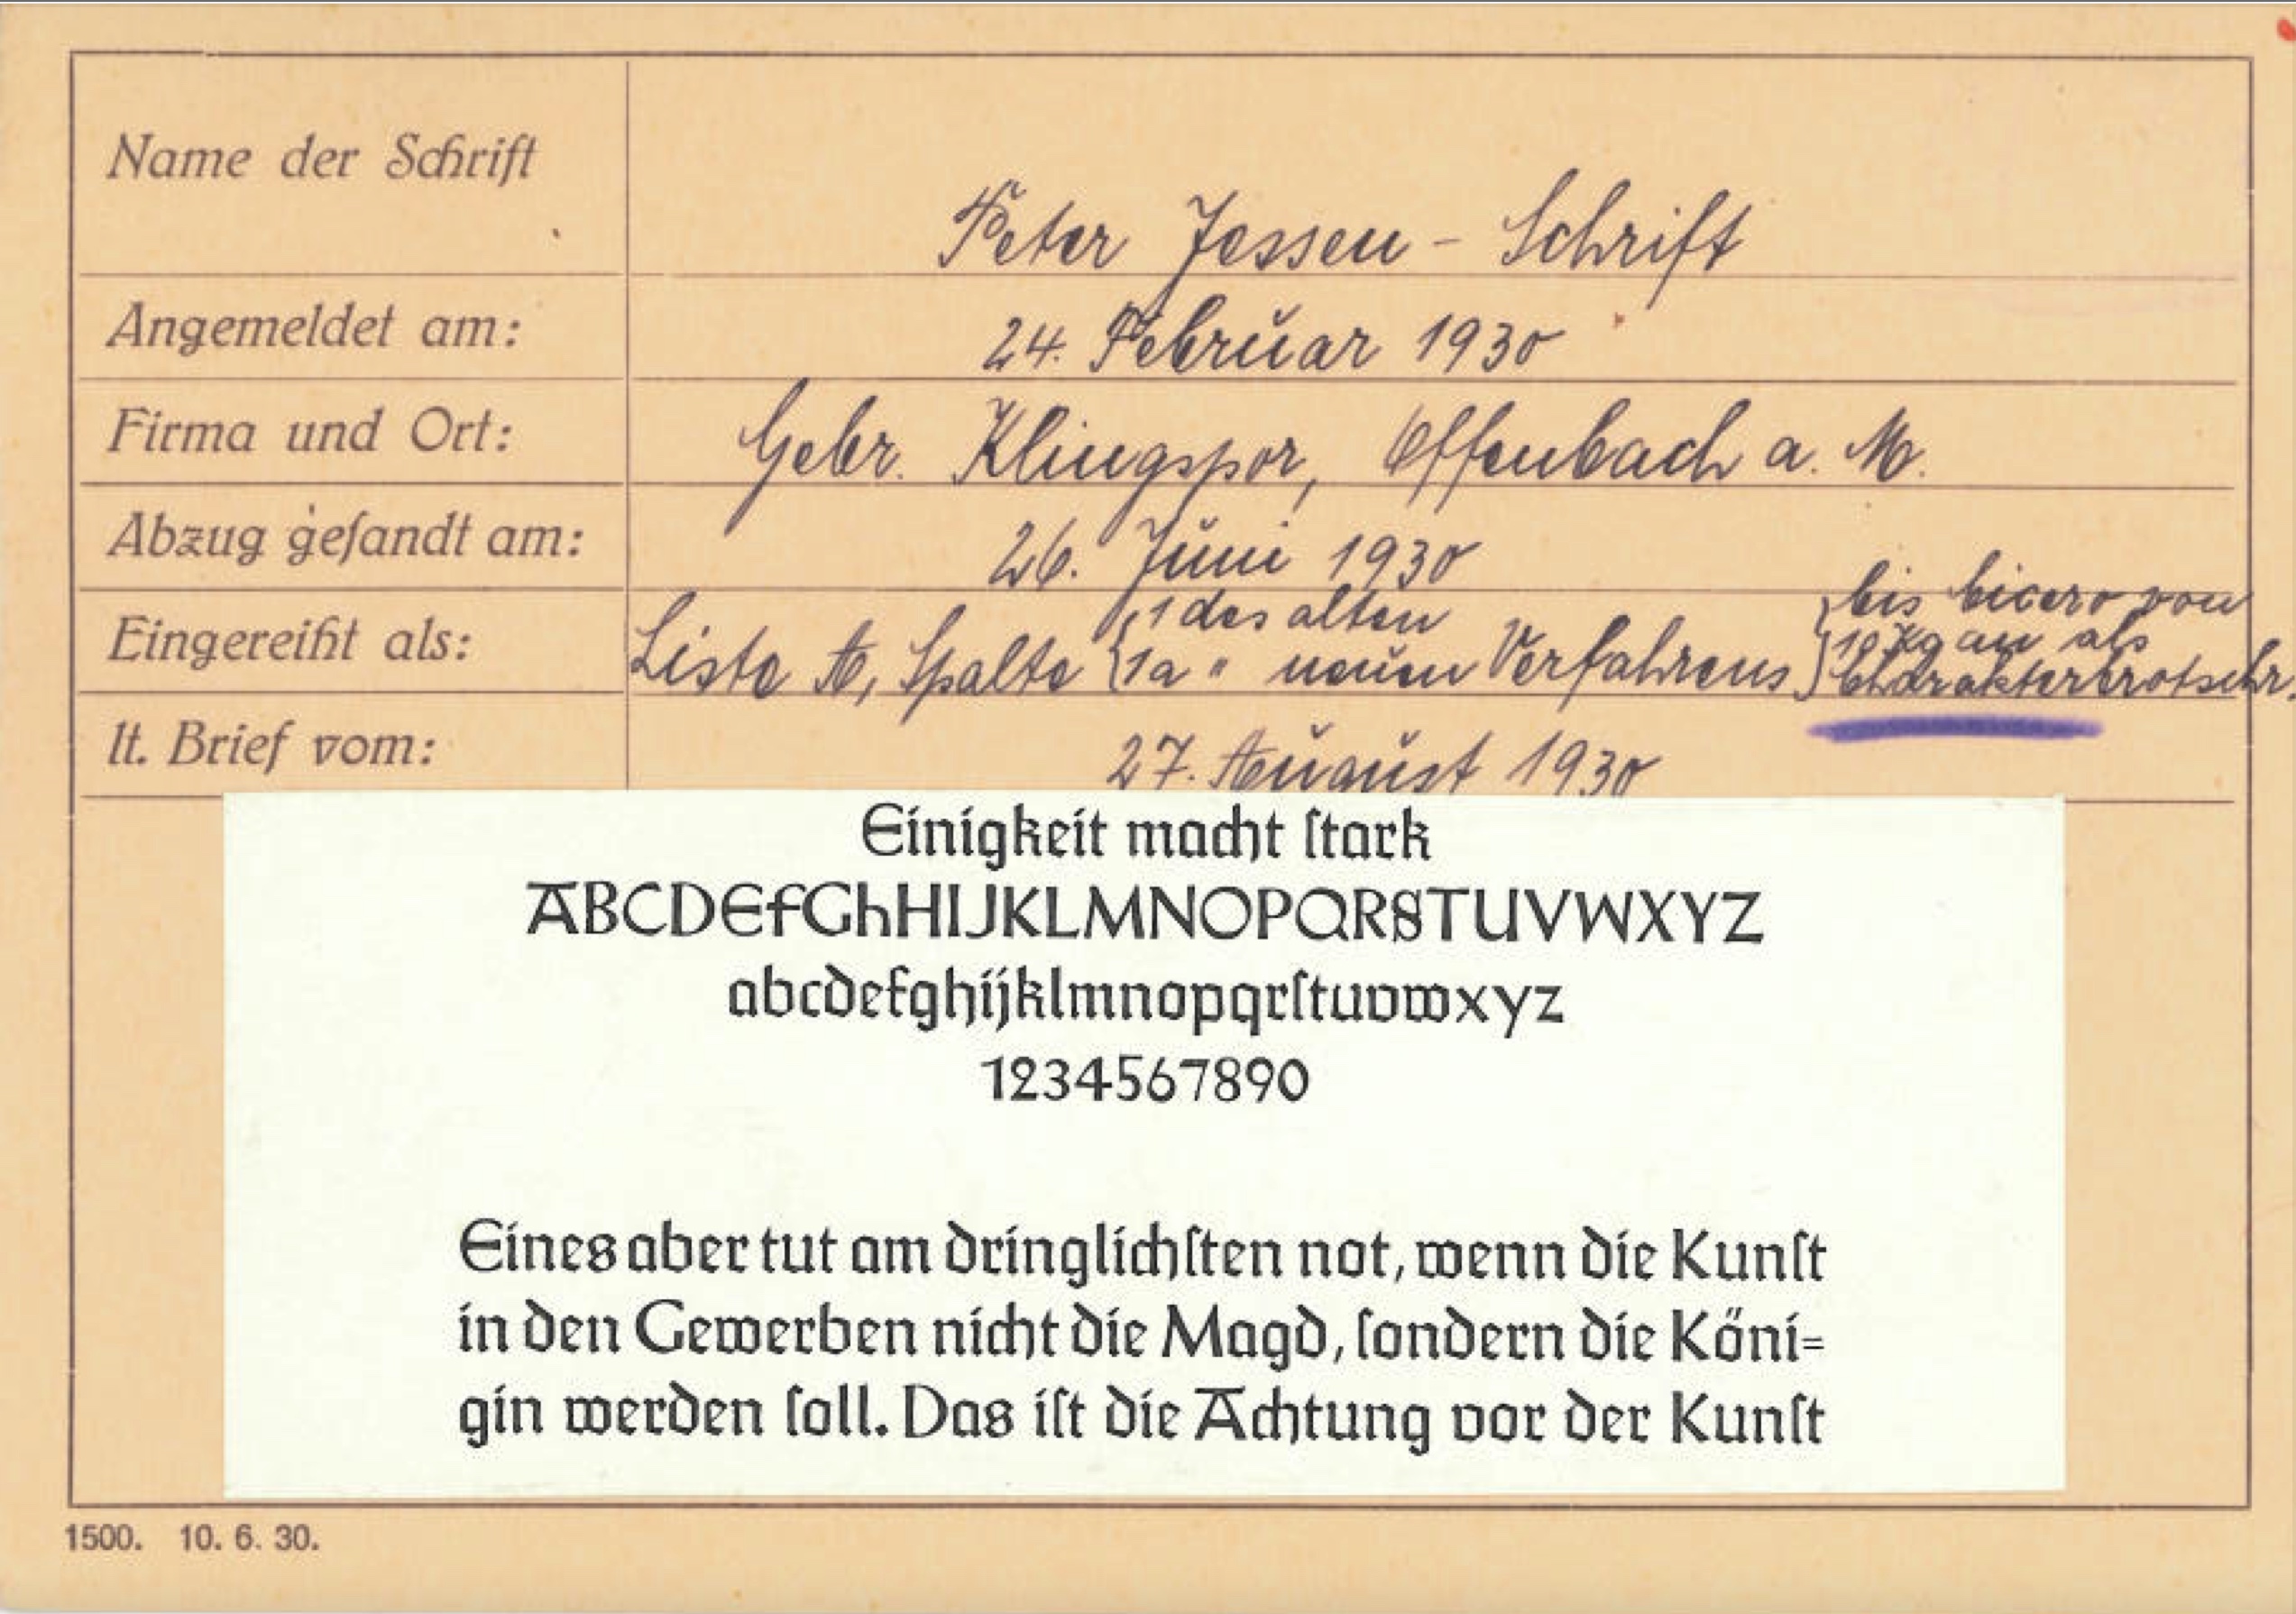 Name der Schrift
Peter Jessen - Schrift
Angemeldet am:
24. Februar 1930
Firma und Ort:
Gebr. Klingspor, Offenbach a. M.
Abzug geſandt am:
26. Juni 1930
Eingereiht als:
Liste A, Spalte { 1 des alten
1a " neuen Verfahrens } bis Cicero von
10 kg an als
Charakterbrotschr.
lt. Brief vom:
27. August 1930
Einigkeit macht ſtark
ABCDEFGhHIJKLMNOPQRSTUVWXYZ
abcdefghijklmnopqrſtuvwxyz
1234567890
Eines aber tut am dringlichſten not, wenn die Kunſt
in den Gewerben nicht die Magd, ſondern die Köni=
gin werden ſoll. Das iſt die Achtung vor der Kunſt
1500. 10. 6. 30.